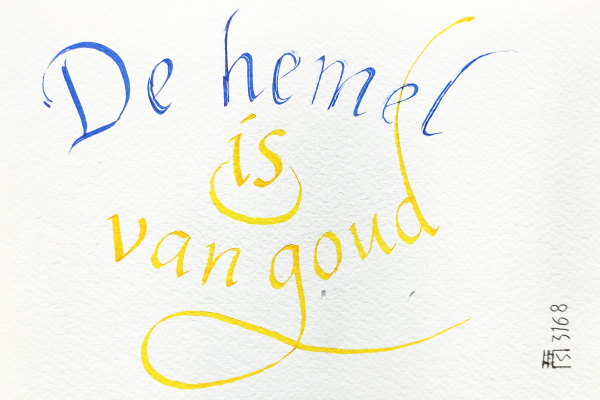 De hemel
is
van goud
3168